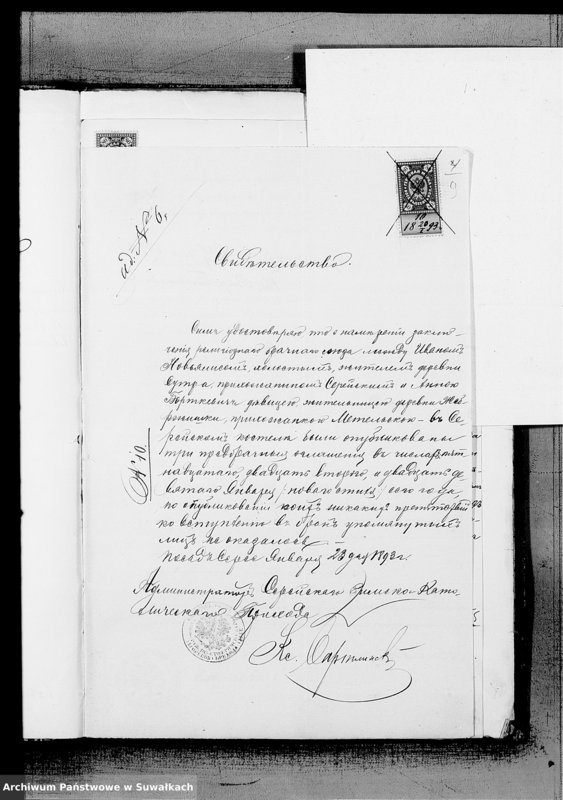 4
9
10
18 20/I 93.
ad. № 6.
Свидѣтельство.
Симъ удостовѣряю, что о намѣреніи заклю-
ченія религіознаго брачнаго союза между Иваномъ
холостымъ, жителемъ деревни
прихожаниномъ Серейскимъ и Анною
дѣвицею жительницею деревни
прихожанкою Метельскою – въ Се-
рейскомъ костелѣ были опубликованы
три предбрачныя оглашенія въ числахъ пят-
надцатаго, двадцать втораго и двадцать де-
вятаго Января / новаго стиля / сего года
по опубликованіи коихъ никакихъ препятствій
ко вступленію въ бракъ упомянутыхъ
лицъ не оказалось. –
Посадъ Серее Января 23 дня 1893 г.
№ 10
Администраторъ Серейскаго Римско-Като-
лическаго Прихода
Кс.
Archiwum Państwowe w Suwałkach